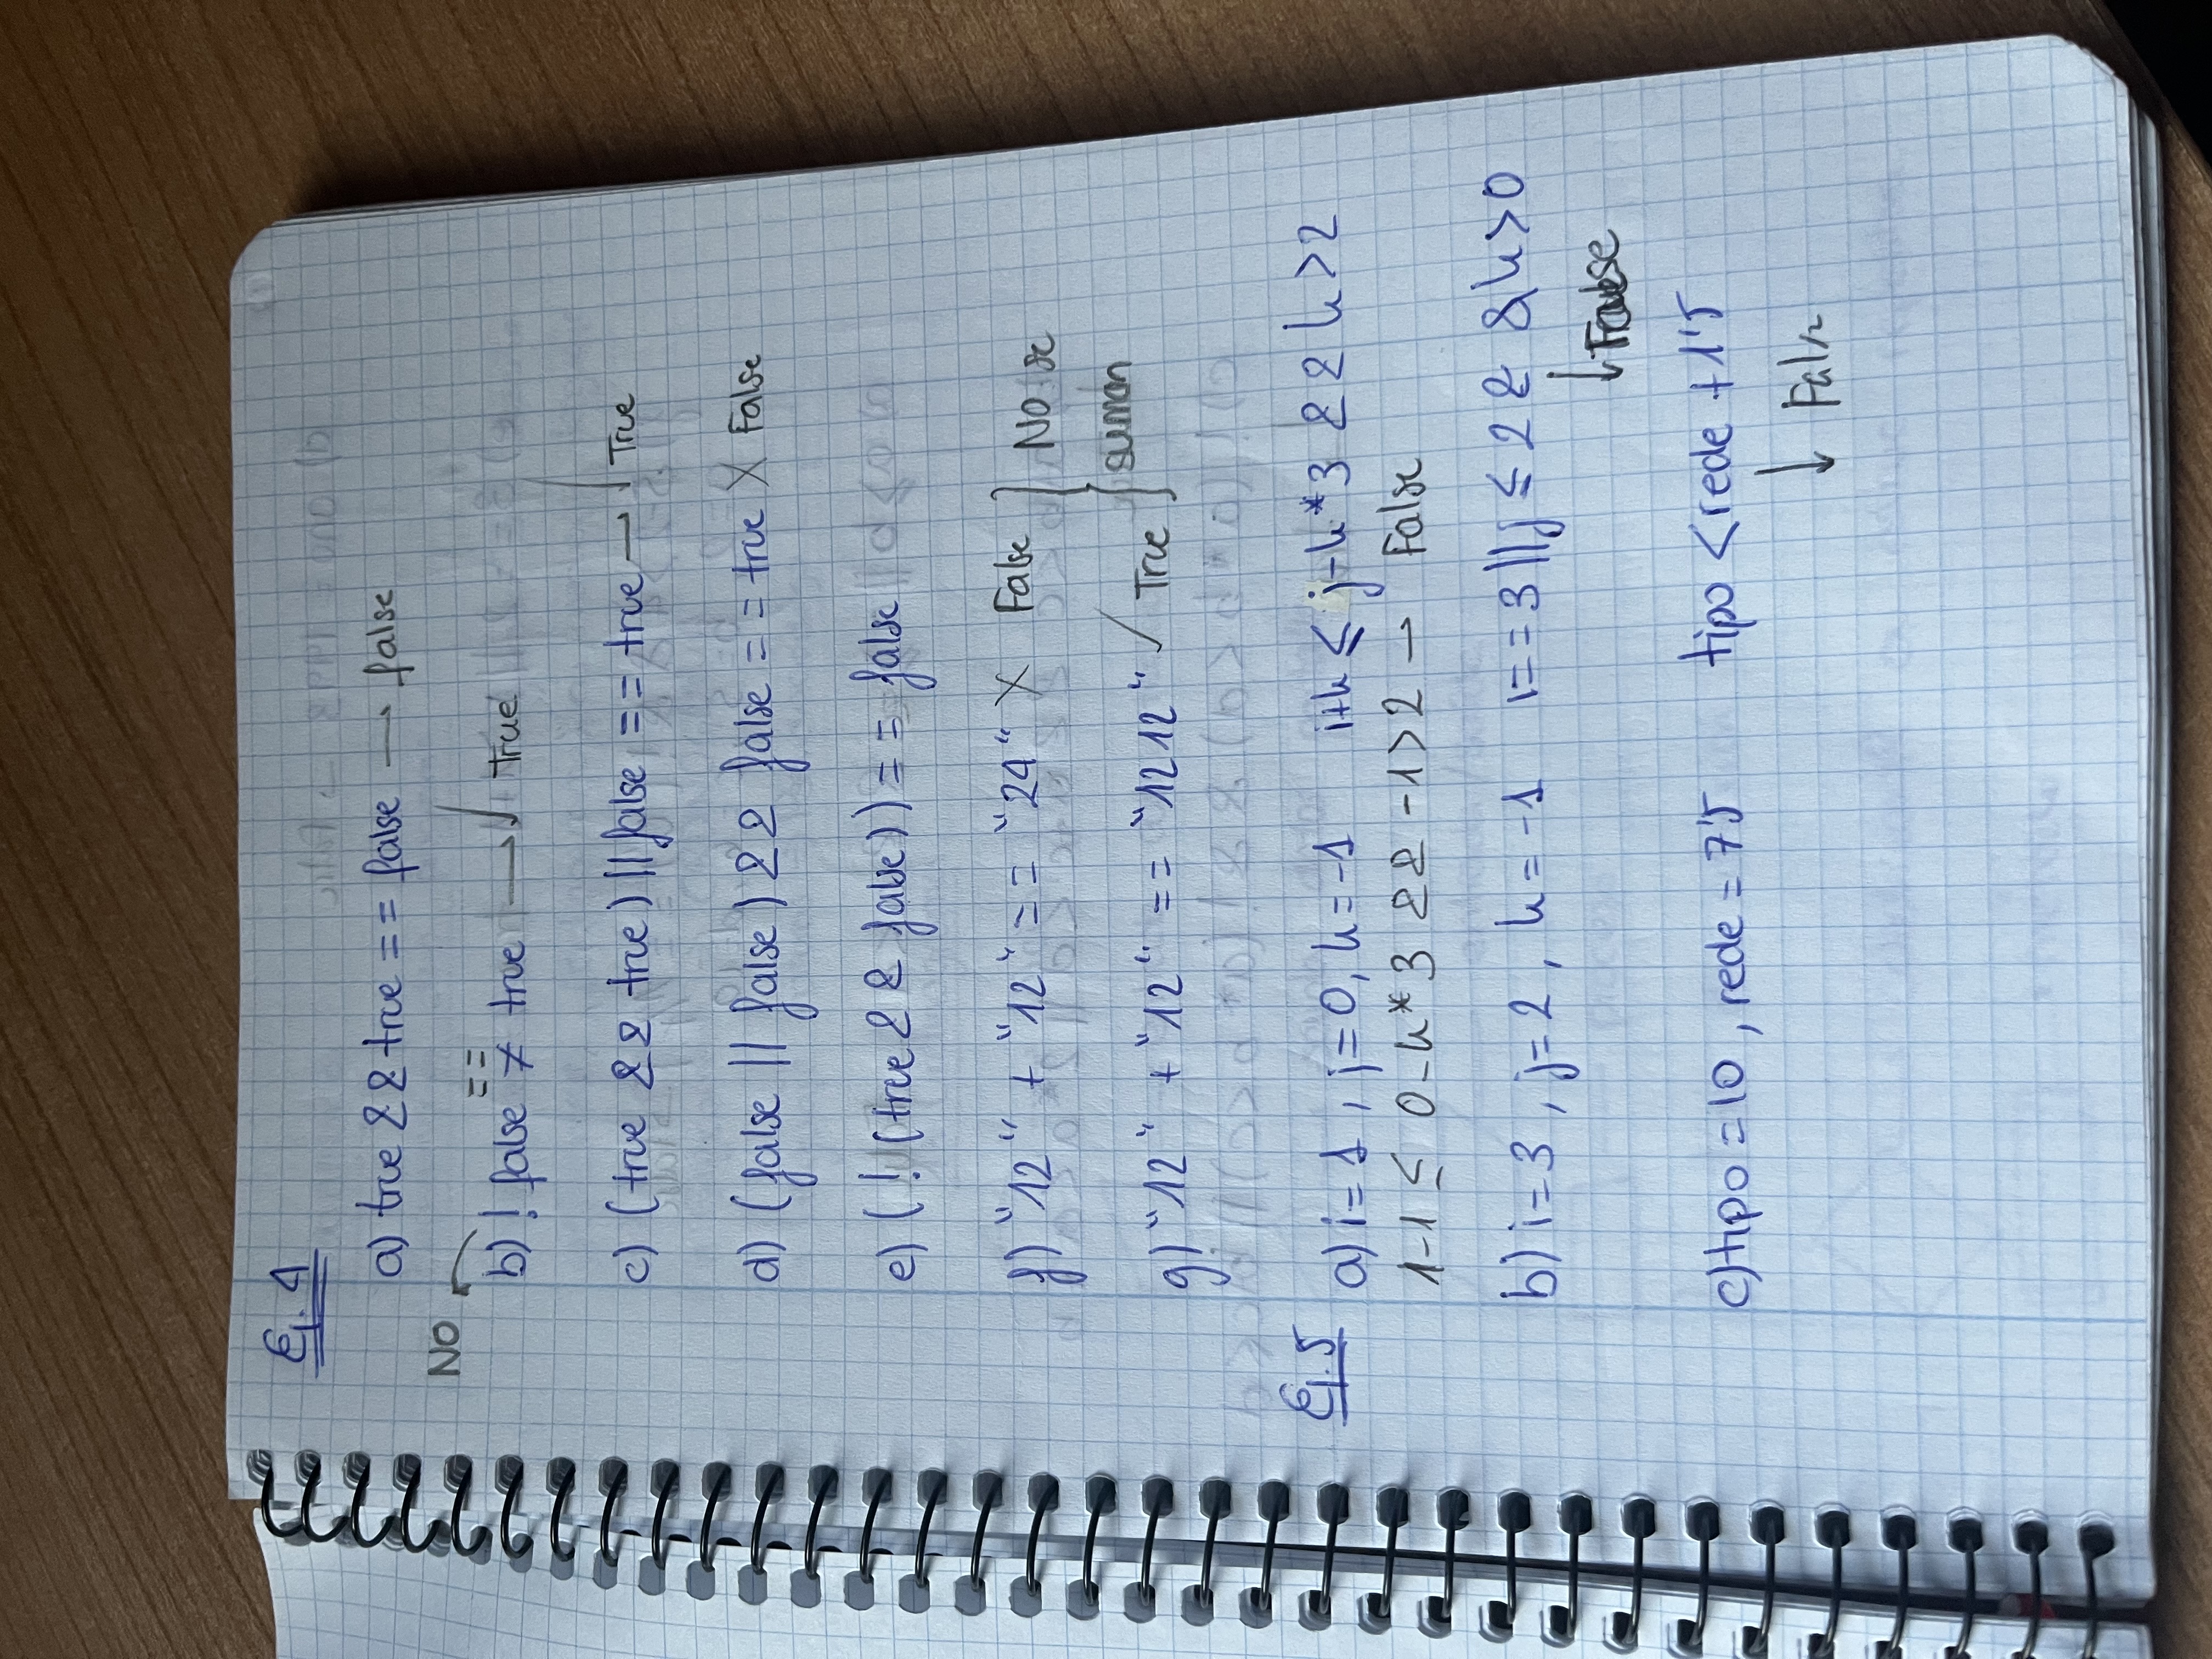 Ej. 4
a) true && true == false → false
NO
==
b) ! false ≠ true → ✓ True
c) (true && true) || false == true → ✓ True
d) (false || false) && false == true X False
e) (! (true && false)) == false
f) "12" + "12" == "24" X False
No se
suman
g) "12" + "12" == "1212" ✓ True
Ej. 5 a) i = 1, j = 0, k = -1 i+k ≤ j-k*3 && k > 2
1-1 ≤ 0-k*3 && -1 > 2 → False
b) i = 3, j = 2, k = -1 i == 3 || j ≤ 2 && k > 0
↓
c) tipo = 10, rede = 7'5 tipo < rede + 1'5
↓ False